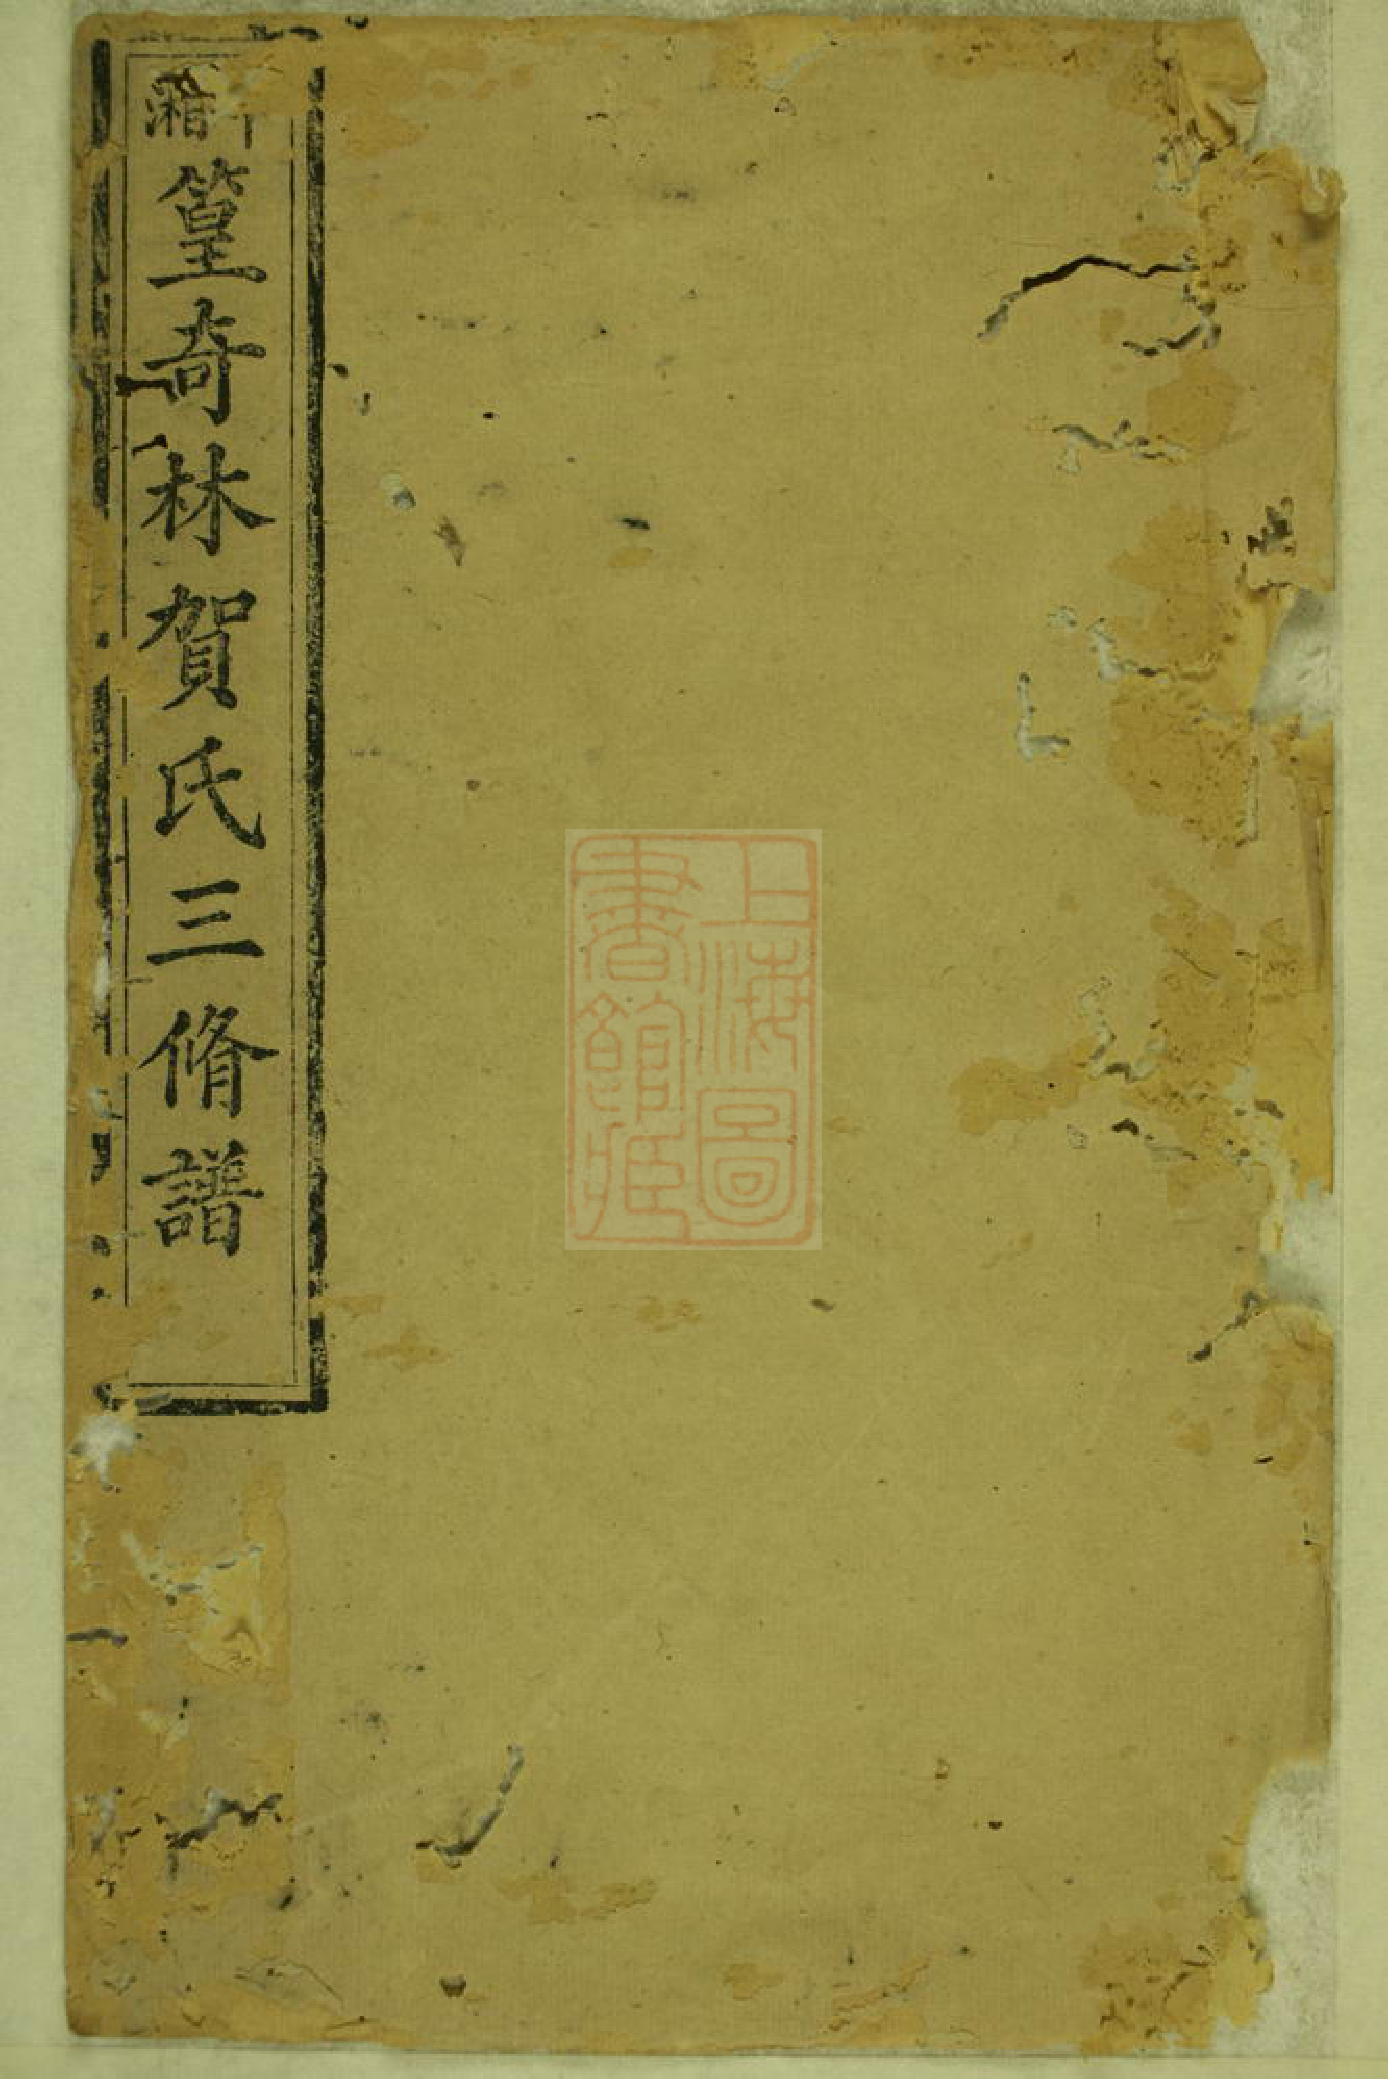 湘
篁奇林賀氏三脩譜
上海圖
書館藏